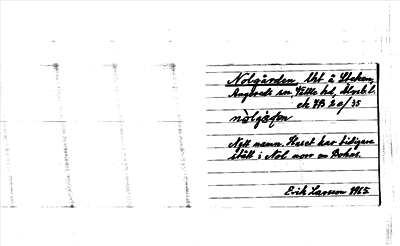 Nolgården, Hst å Steken,
Angereds sn, Vättle hd, Älvsb. l.
ek 7B 2 a/35
nòlgàɖen
Nytt namn. Huset har tidigare
stått i Nöl norr om Bohus.
Erik Larsson 1965